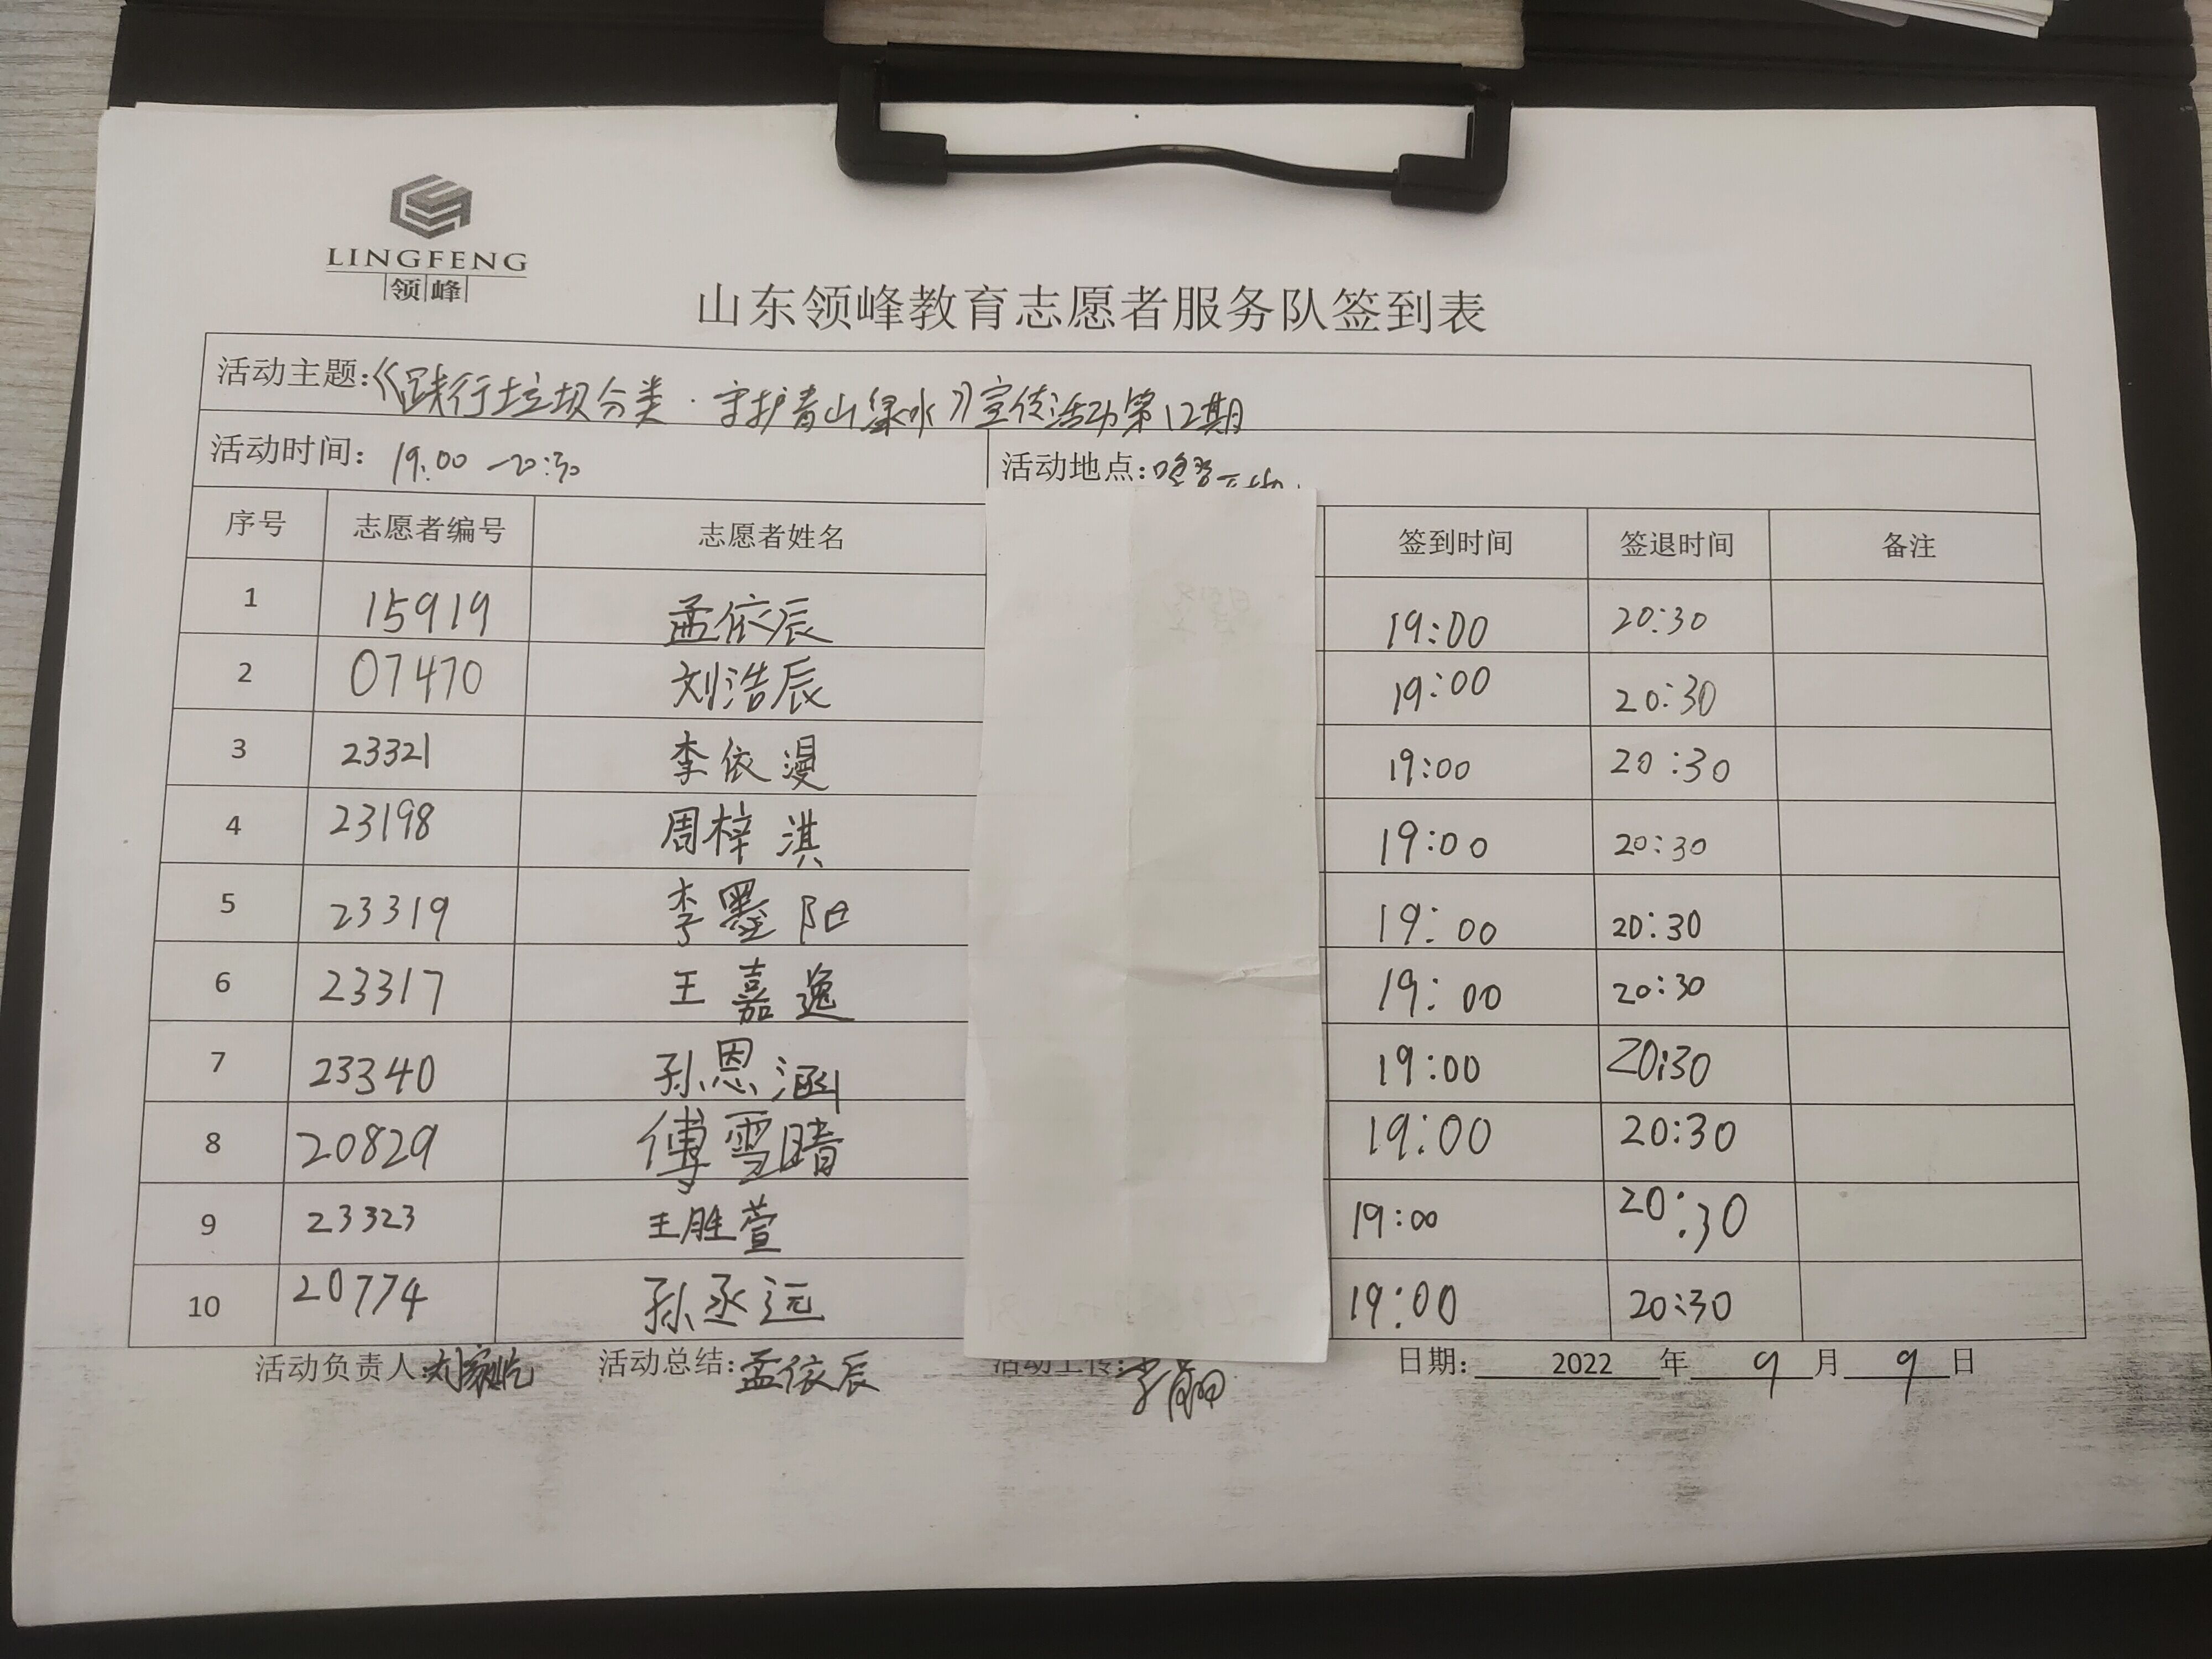 LINGFENG
领峰
山东领峰教育志愿者服务队签到表
活动主题:《践行垃圾分类·守护青山绿水》宣传活动第12期
活动时间: 19:00-20:30 活动地点:
序号 志愿者编号 志愿者姓名 签到时间 签退时间 备注
1 15919 孟依辰 19:00 20:30
2 07470 刘浩辰 19:00 20:30
3 23321 李依漫 19:00 20:30
4 23198 周梓淇 19:00 20:30
5 23319 李墨阳 19:00 20:30
6 23317 王嘉逸 19:00 20:30
7 23340 孙恩涵 19:00 20:30
8 20829 傅雪晴 19:00 20:30
9 23323 王胜萱 19:00 20:30
10 20774 孙丞远 19:00 20:30
活动负责人: 活动总结:孟依辰 活动上传: 日期: 2022 年 9 月 9 日